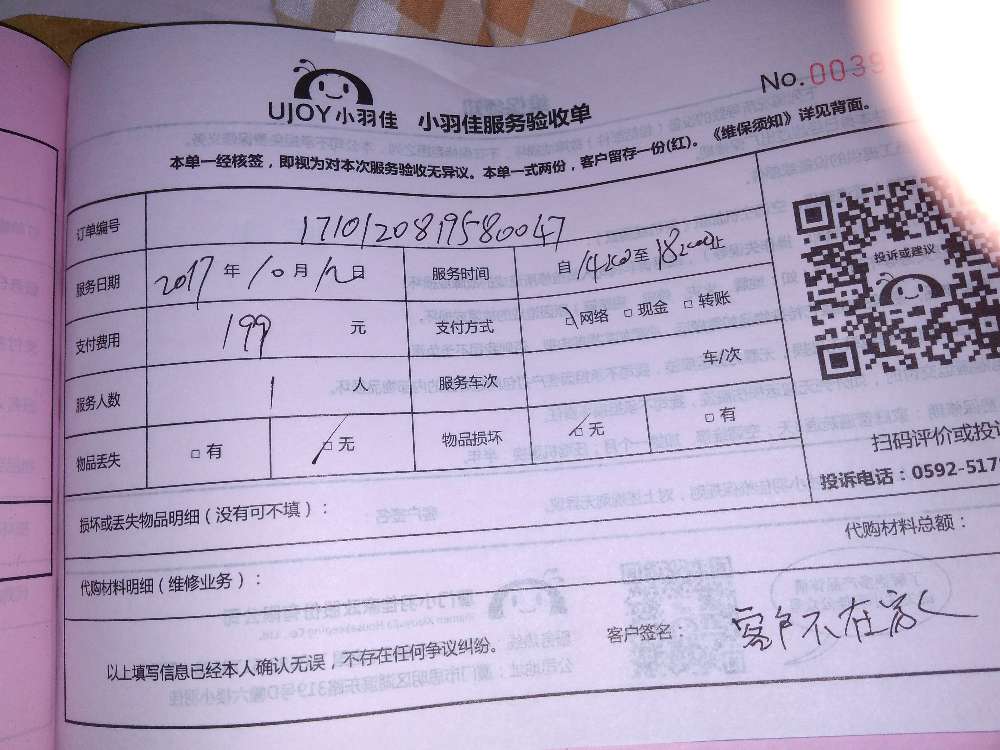 No.0039
UJOY小羽佳 小羽佳服务验收单
本单一经核签，即视为对本次服务验收无异议。本单一式两份，客户留存一份(红)。《维保须知》详见背面。
订单编号 1710120819580047
服务日期 2017年10月12日 服务时间 自14:00至18:00止
支付费用 199 元 支付方式 □网络 □现金 □转账
服务人数 1 人 服务车次 车/次
物品丢失 □有 □无 物品损坏 □无 □有
投诉或建议
扫码评价或投诉
投诉电话：0592-517
损坏或丢失物品明细（没有可不填）：
代购材料明细（维修业务）： 代购材料总额：
以上填写信息已经本人确认无误，不存在任何争议纠纷。 客户签名： 客户不在家